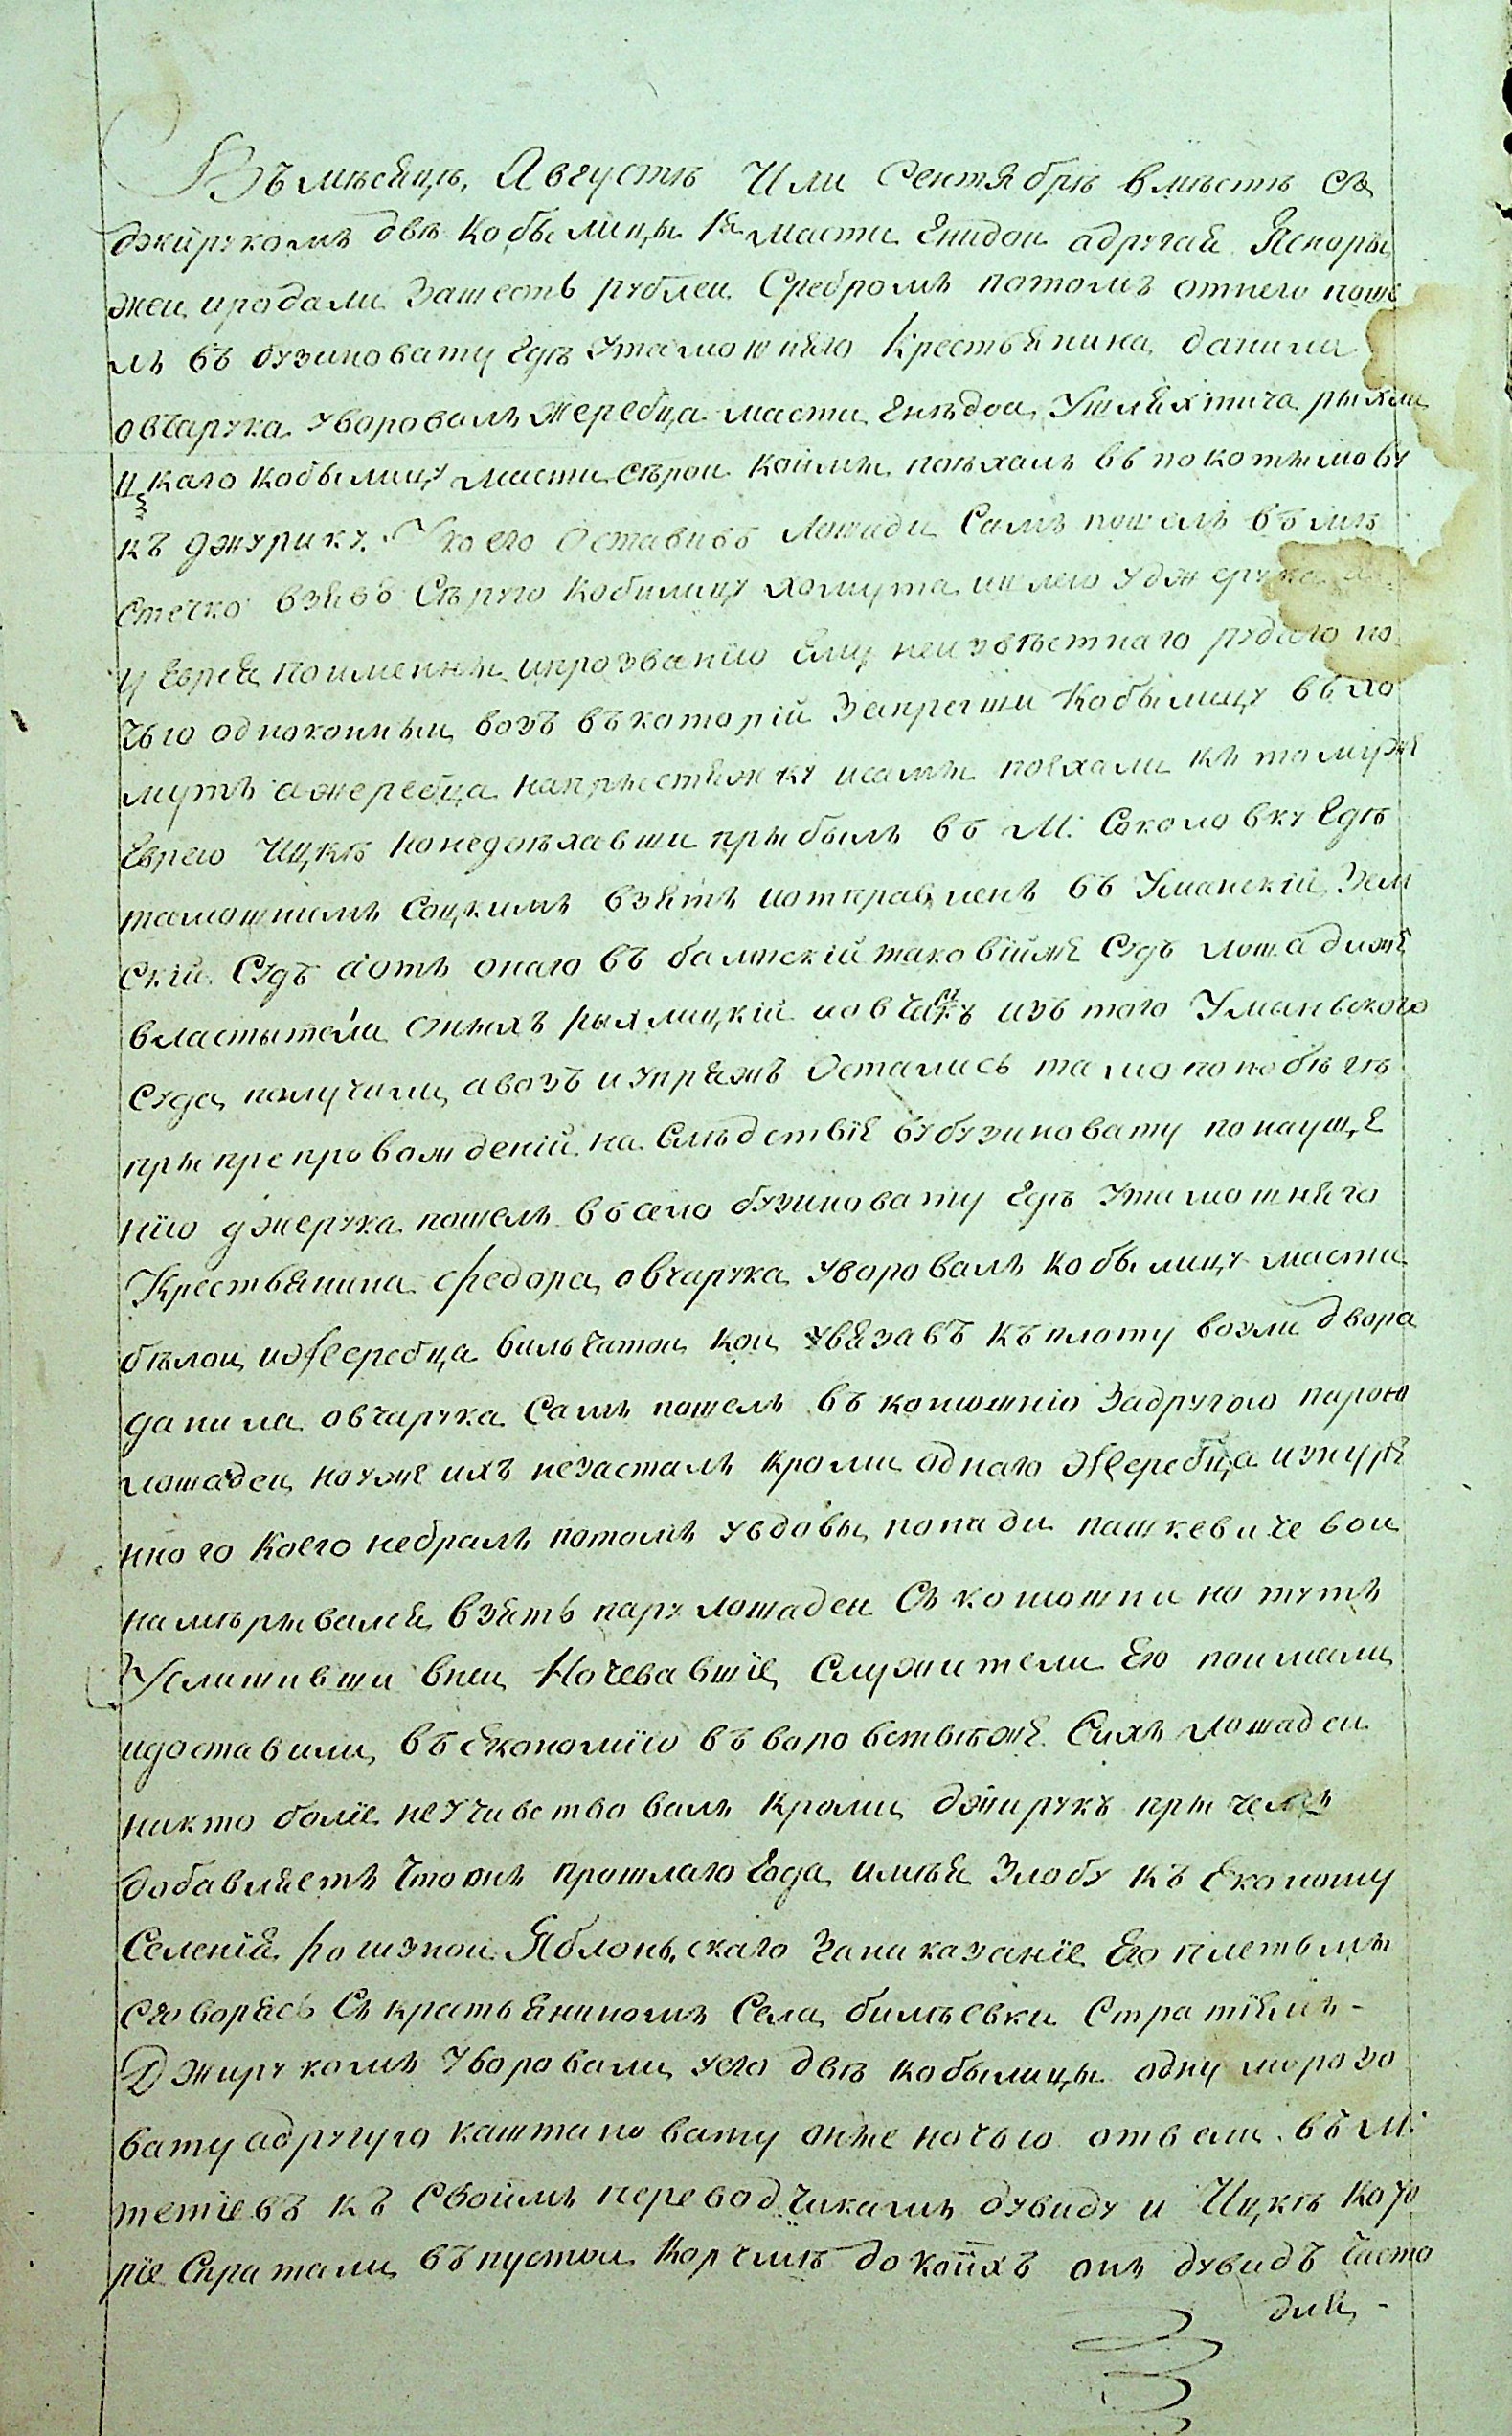 Въ мѣсяцѣ, Августѣ Или Сентябрѣ вмѣстѣ съ
джирукомъ двѣ кобылицы 1я масти Гнидои адругая Ясноры
жеи продали Зашесть рублеи Сребромъ потомъ отнего поше
лъ въ бузиновату Где Утамошняго Крестьянина данила
овчарука уворовалъ жеребца масти гнѣдои, Ушляхтича рыхли
цкаго кобылицу масти сѣрои коимы поѣхалъ въ покотылову
къ джуруку. У коего Оставивъ лошади Самъ пошелъ въ мѣ
стечко взявъ Сѣрую кобилицу хомута ишлею уджерука
у еврея поименны ипрозванію Ему неизвѣстнаго рудого но
чъю одноконныи возъ въкоторій Запрягши Кобылицу въ хо
мутѣ ажеребца напрыстяжку исамы поехали къ томуже
Еврею Ицкѣ ионедоѣхавши прыбылъ въ М: Соколовку где
тамошнимъ Соцкимъ взятъ иотправленъ въ Уманскій Зем
скій Судъ аотъ онаго въ балтскій таковійже Судъ лошадиже
властытели оныхъ рыхлицкій иовчарукъ изъ того Уманьского
Суда получили, авозъ иупряжъ Остались тамо попобѣгѣ
прыпрепровожденіи на Слѣдствіе вубузиновату понауще
нію джерука пошелъ въ село бузиновату где утамошняго
Крестьянина федора, овчарука уворовалъ кобылицу масти
бѣлои, ижеребца вильчатои кои увязавъ къплоту возли двора
данила овчарука Самъ пошелъ въ конюшню Задругою парою
лошадеи, ноуже ихъ незасталъ кроми однаго Жеребца изнуре
нного коего небралъ потомъ увдовы, попади пашкевичевои
намѣрывался, взять пару лошадеи Съ конюшни но тутъ
Услишивши внеи Ночевавшіе, Служители Его поимали,
идоставили, въ Економію въ воровствѣже Сихъ лошадеи
никто боліе неучавствовалъ кроми, джирукъ прычемъ
добавляетъ что онъ прошлаго года, имѣя Злобу къ Економу
Селенія рошзнои Яблоньскаго Занаказаніе Его плетьмы
сговорясь Съ кратьяниномъ Села, билѣевки Стратіемъ-
Джируком уворовали, уего двѣ кобылицы одну морозо
вату адругую каштановату онже ночью отвели въ М:
тетіевъ къ своимъ переводчикамъ дувиду и Ицкѣ кото
ріе Спратали, въпустои Корчмѣ докоихъ онъ дувидъ часто
для, -